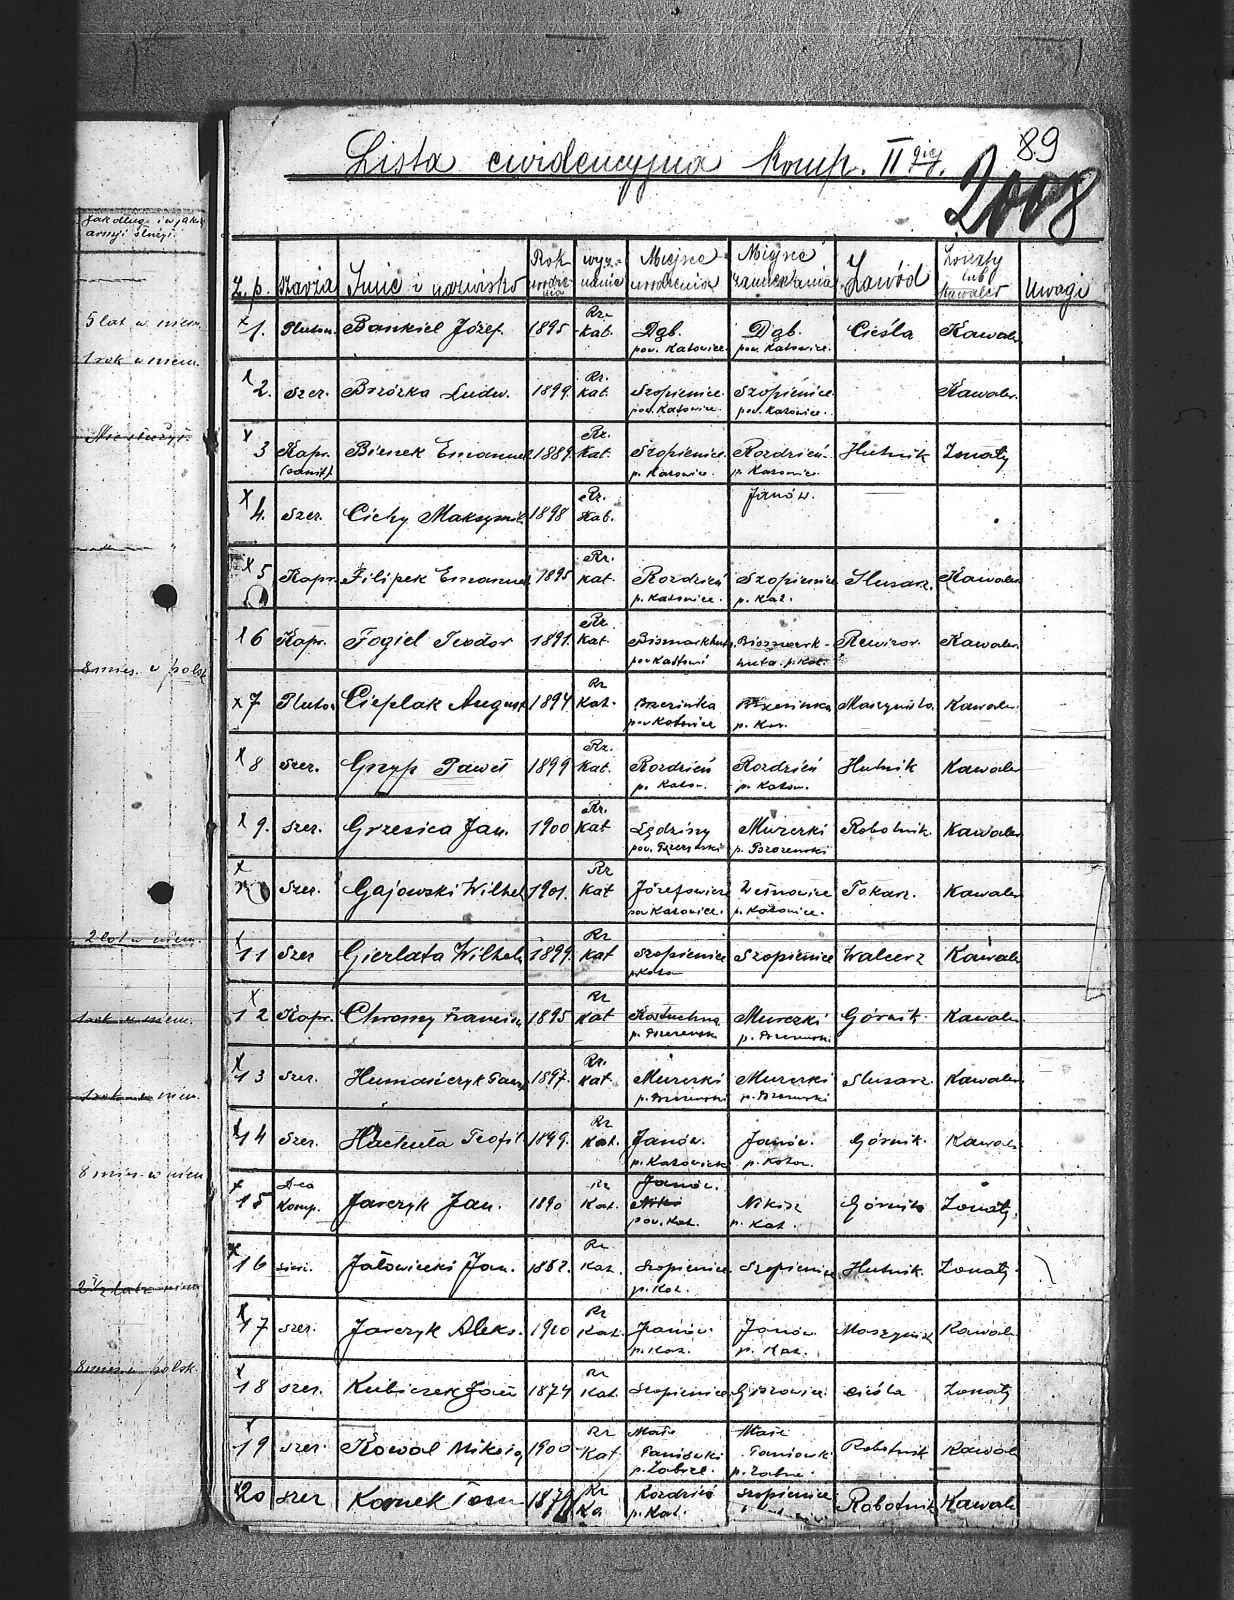 89
Lista ewidencyjna komp. II giej.
2008
Jak długo i w jakiej
armji służył.
L.p. szarża Imię i nazwisko Rok urodzenia wyznanie Miejsce urodzenia Miejsce zamieszkania Zawód Żonaty lub kawaler Uwagi
5 lat w niem.
x 1. Pluton. Bankiel Józef. 1895 Rz.-Kat. Dąb. pow. Katowice. Dąb. pow. Katowice. Cieśla Kawaler
1 rok w niem.
x 2. szer. Brzózka Ludw. 1899. Rz. Kat. Szopienice pow. Katowice. Szopienice pow. Katowice. Kawaler.
Nie służył.
x 3 Kapr. (sanit) Bienek Emanuel 1889. Rz. Kat. Szopienice p. Katowice. Rozdzień p. Katowice. Hutnik Żonaty
x 4. szer. Cichy Maksymil. 1898 Rz. Kat. Janów.
x 5 Kapr. Filipek Emanuel 1895 Rz. Kat. Rozdzień p. Katowice. Szopienice p. Kat. Slusarz. Kawaler
8 mies. w polsk.
x 6 Kapr. Fogiel Teodor 1891. Rz. Kat. Bismarkhuta Bismark-huta. p. Kat. Rewizor. Kawaler.
x 7 Pluto. Cieplak August 1894 Rz Kat. Brzezinka pow Katowice Brzezinka p. Kat. Maszynista Kawaler
x 8 szer. Gryp Paweł 1899 Rz. Kat. Rozdzień p. Katow. Rozdzień p. Katow. Hutnik Kawaler
x 9. szer. Grzesica Jan. 1900 Rz. Kat Lędziny Murcki Robotnik. Kawaler
x szer. Gajowski Wilhel 1901. Rz Kat Józefowice pow Katowice. Wełnowice p. Katowice. Tokarz. Kawaler
2 lat w niem.
x 11 szer Gierlata Wilhelm 1899. Rz Kat Szopienice p Katow Szopienice Walcerz Kawale
1 rok w niem.
x 12 Kapr. Chromy Francisz 1895 Rz Kat Kostuchna Murcki Górnik. Kawaler
1 rok w niem.
x 13 szer. Humaściżyk Pawe 1897. Rz. Kat. Murcki Murcki slusarz. Kawaler
x 14 szer. Hachuła Teofil 1899. Rz Kat. Janów. p. Katowice Janów. p. Katow. Górnik. Kawale
8 mies. w niem
x 15 D-ca Komp. Jarczyk Jan. 1890 Rz Kat. Janów. pow. Kat. Nikisz p. Kat. Górnik Żonaty.
2 1/2 lata w niem
x 16 Jałowiecki Jan. Rz Kat. Szopienice p. Kat. Szopienice Hutnik. Żonaty.
x 17 szer. Jarczyk Aleks. 1900 Rz Kat. Janów. p. Kat. Janów p. Kat. Maszynis Kawale
8 mies w polsk.
x 18 szer. Kubiczek Jan 1874 Rz Kat. Szopienice Giszowiec cieśla Żonaty
x 19 szer. Kowol Mikołaj 1900 Rz Kat. Małe Paniówki p. Zabrze. Małe Paniówki p. Zabrze. Robotnik Kawale
x 20 szer Rz Ka Rozdzień p. Kat. Szopienice Robotnik Kawale